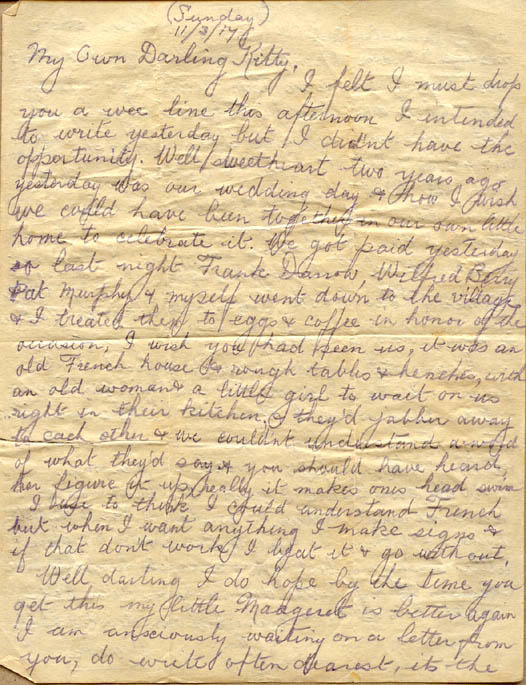 (Sunday)
11/3/17
My Own Darling Kitty,
I felt I must drop
you a wee line this afternoon I intended
to write yesterday but I didn't have the
opportunity. Well sweetheart two years ago
yesterday was our wedding day & how I wish
we could have been together in our own little
home to celebrate it. We got paid yesterday
so last night Frank Darrow, Wilfred Berry
Pat Murphy & myself went down to the village
& I treated them to eggs & coffee in honor of the
occasion, I wish you had seen us, it was an
old French house & rough tables & benches, with
an old woman & a little girl to wait on us
right in their kitchen. & they'd jabber away
to each other & we couldn't understand a word
of what they'd say & you should have heard
her figure it up, really it makes ones head swim
I use to think I could understand French
but when I want anything I make signs &
if that don't work, I beat it & go without,
Well, darling I do hope by the time you
get this my little Maageret is better again
I am ansciously waiting on a letter from
you, do write often dearest, its the